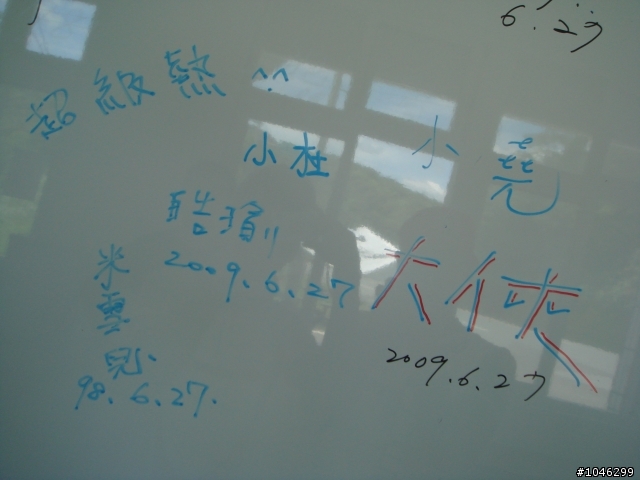 6.27
超級熱 ^^
小杜 小堯
酷瑜
2009.6.27
大俠
2009.6.27
米雪
98.6.27.
#1046299